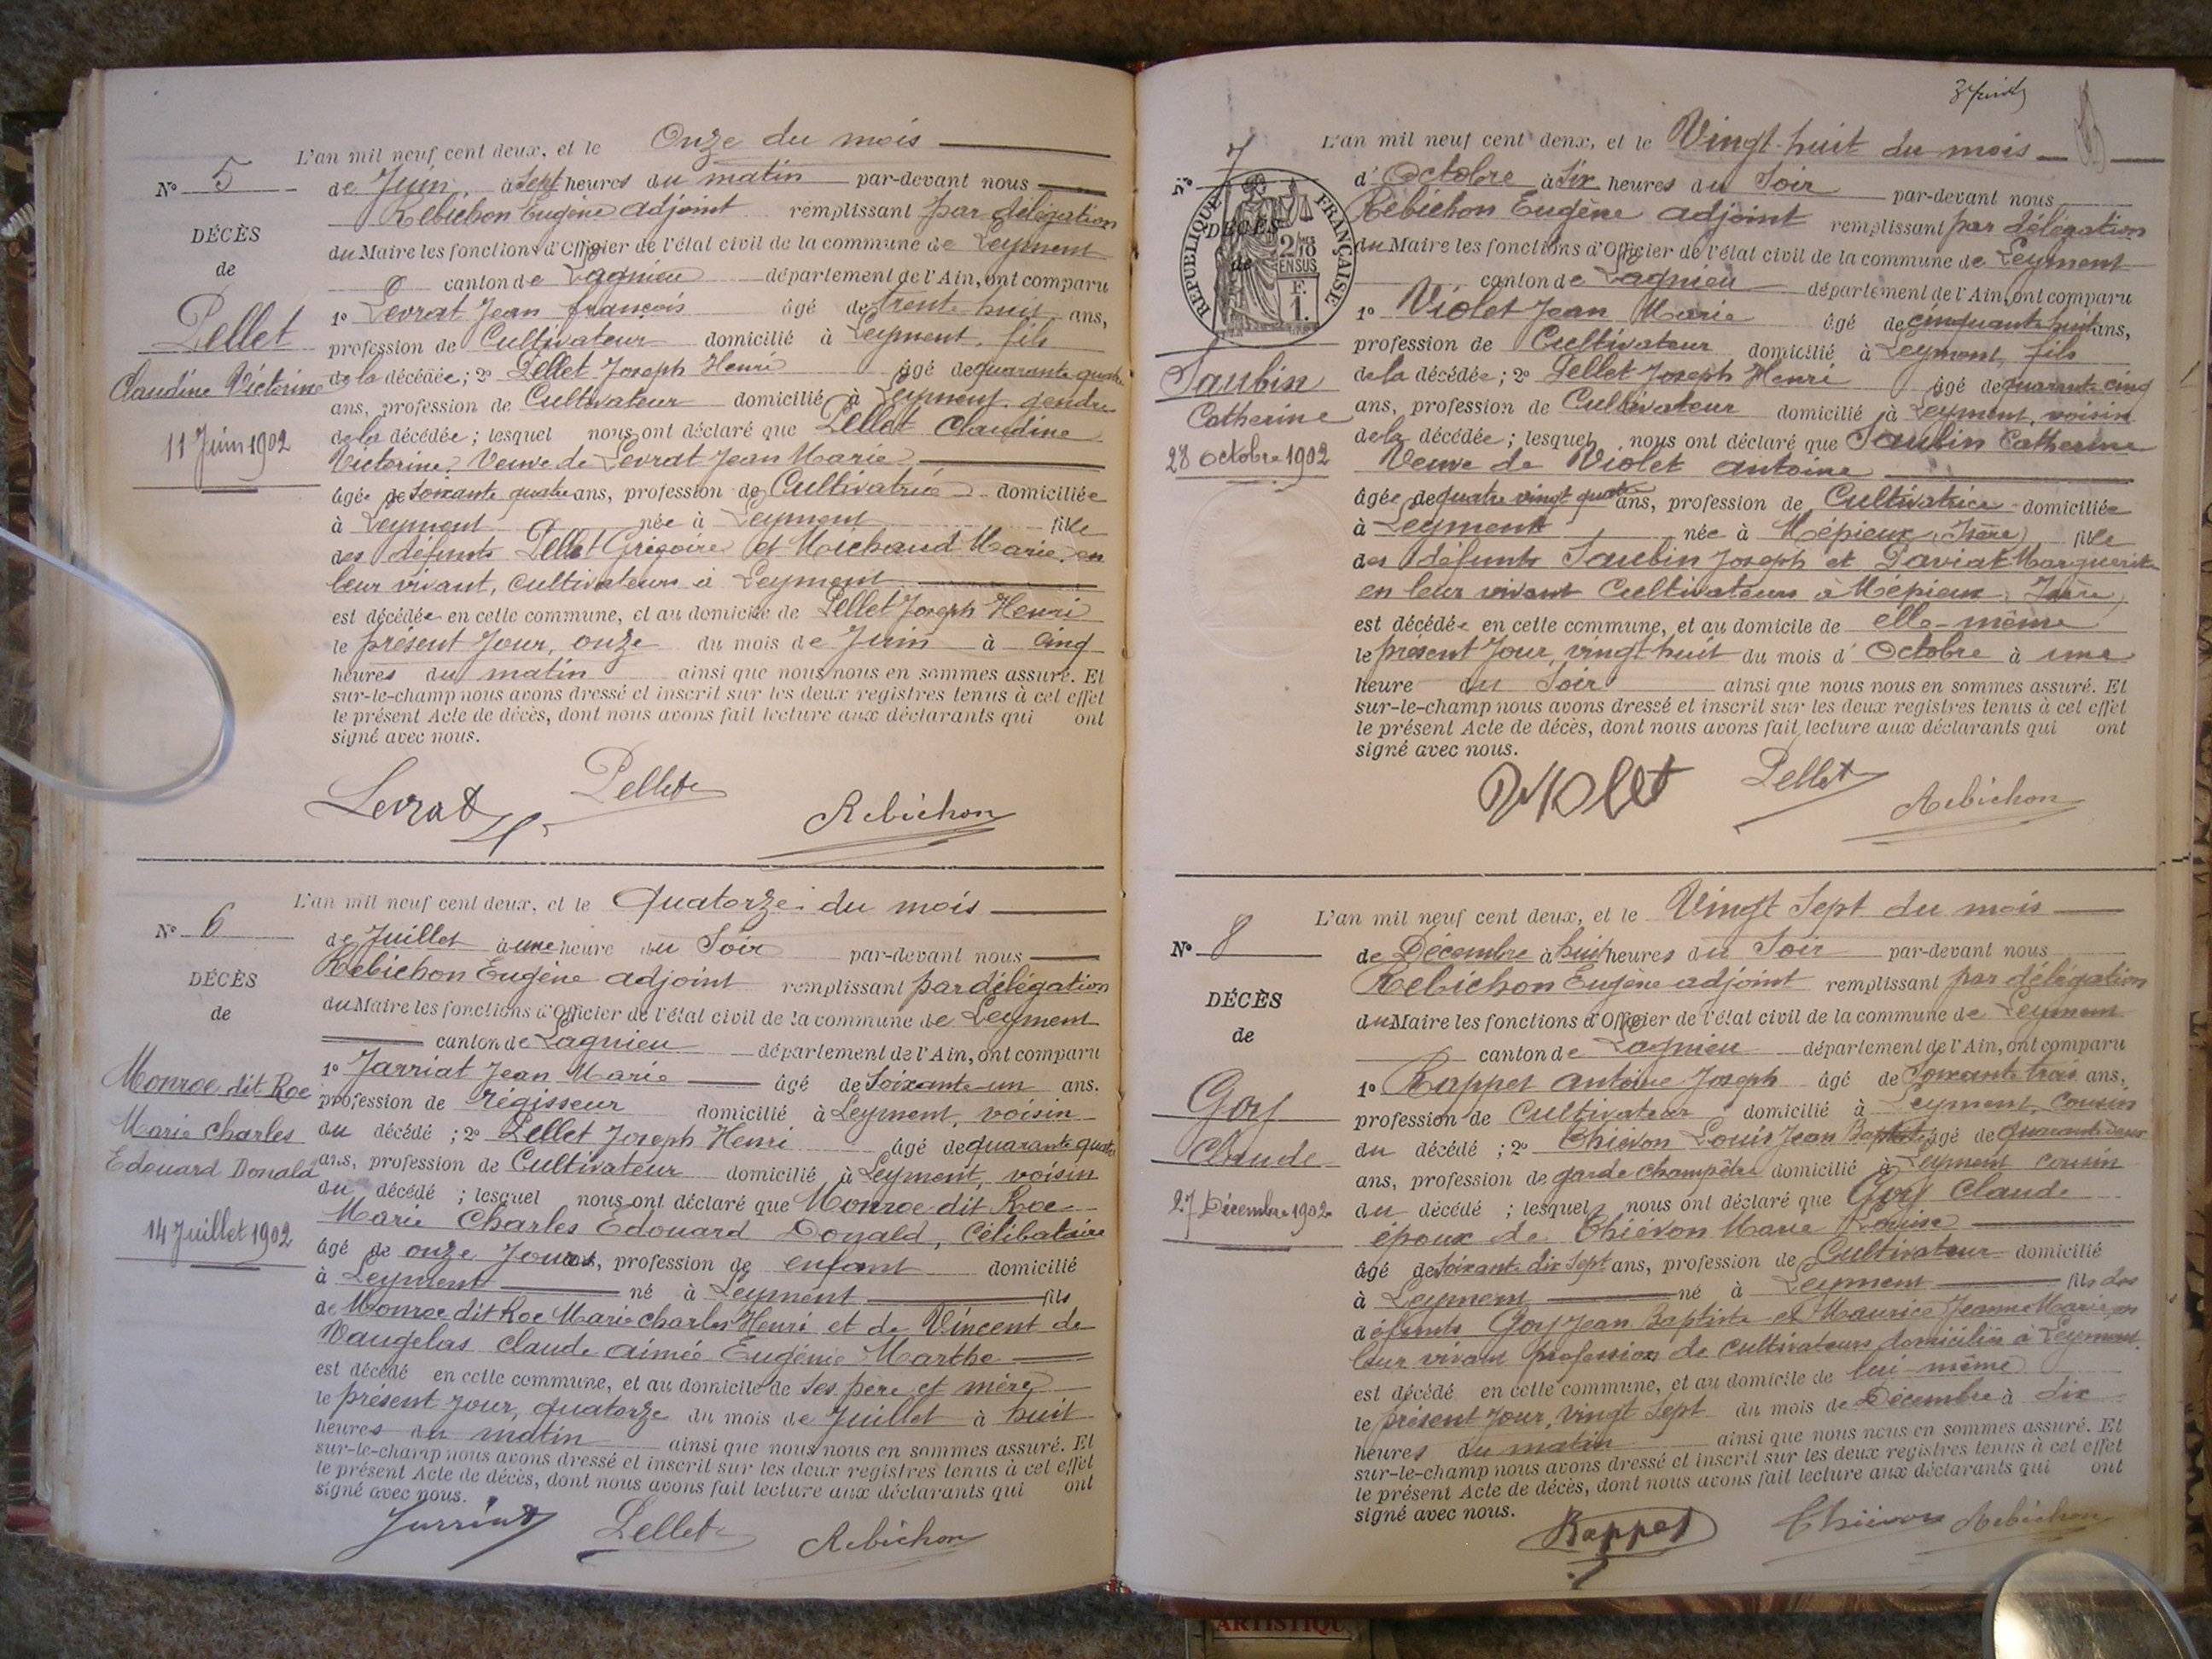 L'an mil neuf cent deux, et le Onze du mois
N° 5 de Juin, à Sept heures du matin par-devant nous
Rebichon Eugène adjoint remplissant par délégation
DÉCÈS
du Maire les fonctions d'Officier de l'état civil de la commune de Leyment
de
canton de Lagnieu département de l'Ain, ont comparu
Pellet
1° Levrat Jean françois âgé de trente huit ans,
profession de Cultivateur domicilié à Leyment, fils
Claudine Victorine
de la décédée; 2° Pellet Joseph Henri âgé de quarante quatre
ans, profession de Cultivateur domicilié à Leyment, gendre
11 Juin 1902
de la décédée; lesquel nous ont déclaré que Pellet Claudine
Victorine, Veuve de Levrat Jean Marie
âgée de Soixante quatre ans, profession de Cultivatrice domiciliée
à Leyment née à Leyment fille
des défunts Pellet Grégoire et Michaud Marie, en
leur vivant, cultivateurs à Leyment
est décédée en cette commune, et au domicile de Pellet Joseph Henri
le présent Jour, onze du mois de Juin à cinq
heures du matin ainsi que nous nous en sommes assuré. Et
sur-le-champ nous avons dressé et inscrit sur les deux registres tenus à cet effet
le présent Acte de décès, dont nous avons fait lecture aux déclarants qui ont
signé avec nous.
Levrat Pellet Rebichon
L'an mil neuf cent deux, et le Quatorze du mois
N° 6 de Juillet à une heure du Soir par-devant nous
Rebichon Eugène adjoint remplissant par délégation
DÉCÈS
du Maire les fonctions d'Officier de l'état civil de la commune de Leyment
de
canton de Lagnieu département de l'Ain, ont comparu
Monroe dit Roe
1° Jarriat Jean Marie âgé de Soixante un ans.
profession de régisseur domicilié à Leyment, voisin
Marie Charles
du décédé; 2° Pellet Joseph Henri âgé de quarante quatre
Edouard Donald
ans, profession de Cultivateur domicilié à Leyment, voisin
du décédé; lesquel nous ont déclaré que Monroe dit Roe
14 Juillet 1902
Marie Charles Edouard Donald, Célibataire
âgé de onze Jours, profession de enfant domicilié
à Leyment né à Leyment fils
de Monroe dit Roe Marie Charles Henri et de Vincent de
Vaugelas Claude Aimée Eugénie Marthe
est décédé en cette commune, et au domicile de ses père et mère,
le présent jour, quatorze du mois de Juillet à huit
heures du matin ainsi que nous nous en sommes assuré. Et
sur-le-champ nous avons dressé et inscrit sur les deux registres tenus à cet effet
le présent Acte de décès, dont nous avons fait lecture aux déclarants qui ont
signé avec nous.
Jarriat Pellet Rebichon
L'an mil neuf cent deux, et le Vingt-huit du mois
N° 7
d'Octobre à Six heures du Soir par-devant nous
Rebichon Eugène adjoint remplissant par délégation
RÉPUBLIQUE FRANÇAISE
DÉCÈS
2/10 EN SUS
F. 1.
de
du Maire les fonctions d'Officier de l'état civil de la commune de Leyment
canton de Lagnieu département de l'Ain, ont comparu
1° Violet Jean Marie âgé de cinquante huit ans,
profession de Cultivateur domicilié à Leyment, fils
Saubin
de la décédée; 2° Pellet Joseph Henri âgé de quarante cinq
Catherine
ans, profession de Cultivateur domicilié à Leyment, voisin
de la décédée; lesquel nous ont déclaré que Saubin Catherine
28 Octobre 1902
Veuve de Violet Antoine
âgée de quatre vingt quatre ans, profession de Cultivatrice domiciliée
à Leyment née à Mépieux (Isère) fille
des défunts Saubin Joseph et Paviat Marguerite
en leur vivant Cultivateurs à Mépieux, Isère,
est décédée en cette commune, et au domicile de elle-même
le présent Jour, vingt-huit du mois d'Octobre à une
heure du Soir ainsi que nous nous en sommes assuré. Et
sur-le-champ nous avons dressé et inscrit sur les deux registres tenus à cet effet
le présent Acte de décès, dont nous avons fait lecture aux déclarants qui ont
signé avec nous.
Violet Pellet Rebichon
L'an mil neuf cent deux, et le Vingt Sept du mois
N° 8 de Décembre à huit heures du Soir par-devant nous
Rebichon Eugène adjoint remplissant par délégation
DÉCÈS
du Maire les fonctions d'Officier de l'état civil de la commune de Leyment
de
canton de Lagnieu département de l'Ain, ont comparu
1° Rappet Antoine Joseph âgé de Soixante trois ans,
Goy
profession de Cultivateur domicilié à Leyment, cousin
Claude
du décédé; 2° Thiévon Louis Jean Baptiste âgé de quarante deux
ans, profession de garde champêtre domicilié à Leyment cousin
27 Décembre 1902
du décédé; lesquel nous ont déclaré que Goy Claude
époux de Thiévon Marie Louise
âgé de Soixante dix sept ans, profession de Cultivateur domicilié
à Leyment né à Leyment fils des
défunts Goy Jean Baptiste et Maurice Jeanne Marie, en
leur vivant profession de cultivateurs domiciliés à Leyment.
est décédé en cette commune, et au domicile de lui-même
le présent Jour, vingt Sept du mois de Décembre à dix
heures du matin ainsi que nous nous en sommes assuré. Et
sur-le-champ nous avons dressé et inscrit sur les deux registres tenus à cet effet
le présent Acte de décès, dont nous avons fait lecture aux déclarants qui ont
signé avec nous.
Rappet Thiévon Rebichon
ARTISTIQUE